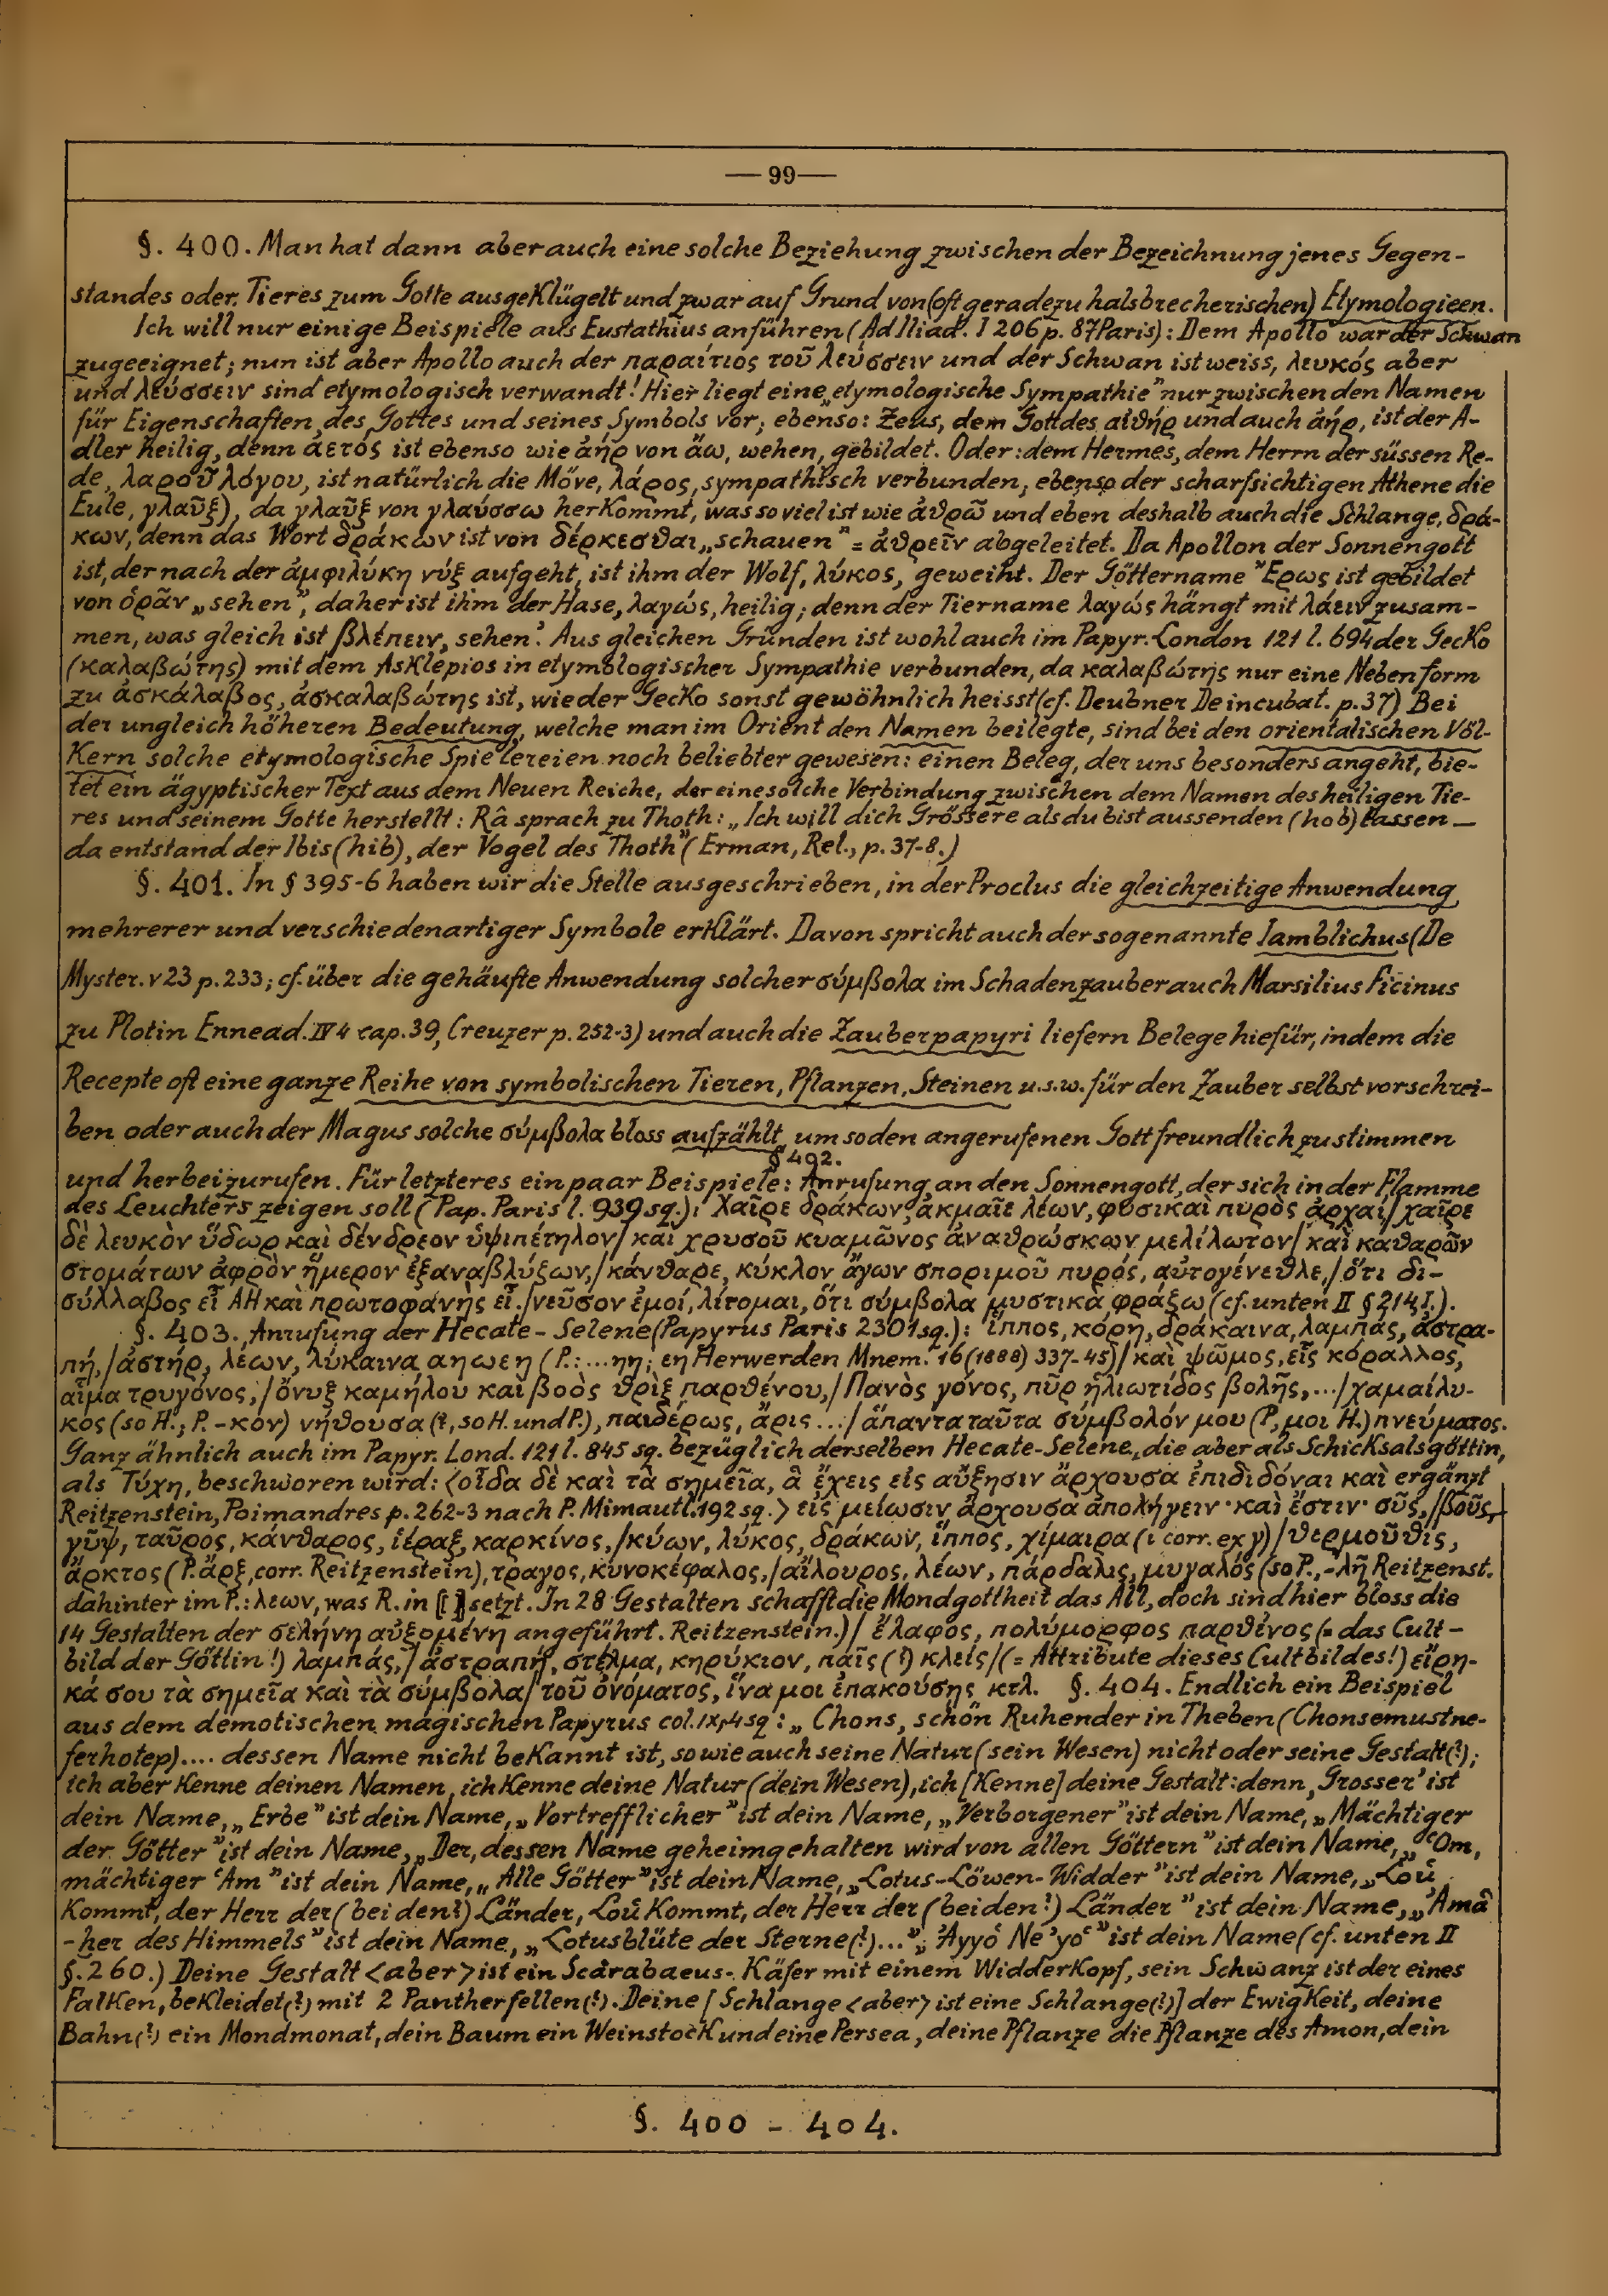 — 99 —
§. 400. Man hat dann aber auch eine solche Beziehung zwischen der Bezeichnung jenes Gegen-
standes oder Tieres zum Gotte ausgeklügelt und zwar auf Grund von (oft geradezu halsbrecherischen) Etymologieen.
Ich will nur einige Beispiele aus Eustathius anführen (Ad Iliad. I 206 p. 87 Paris): Dem Apollo war der Schwan
zugeeignet; nun ist aber Apollo auch der παραίτιος τοῦ λεύσσειν und der Schwan ist weiss, λευκός aber
und λεύσσειν sind etymologisch verwandt! Hier liegt eine „etymologische Sympathie" nur zwischen den Namen
für Eigenschaften des Gottes und seines Symbols vor; ebenso: Zeus, dem Gott des αἰθήρ und auch ἀήρ, ist der A-
dler heilig, denn ἀετός ist ebenso wie ἀήρ von ἄω, wehen, gebildet. Oder: dem Hermes, dem Herrn der süssen Re-
de, λαροῦ λόγου, ist natürlich die Möve, λάρος, sympathisch verbunden, ebenso der scharfsichtigen Athene die
Eule, γλαῦξ), da γλαῦξ von γλαύσσω herkommt, was so viel ist wie ἀθρῶ und eben deshalb auch die Schlange, δρά-
κων, denn das Wort δράκων ist von δέρκεσθαι „schauen" = ἀθρεῖν abgeleitet. Da Apollon der Sonnengott
ist, der nach der ἀμφιλύκη νύξ aufgeht, ist ihm der Wolf, λύκος, geweiht. Der Göttername Ἔρως ist gebildet
von ὁρᾶν „sehen", daher ist ihm der Hase, λαγώς, heilig; denn der Tiername λαγώς hängt mit λάειν zusam-
men, was gleich ist βλέπειν, sehen'. Aus gleichen Gründen ist wohl auch im Papyr. London 121 l. 694 der Gecko
(καλαβώτης) mit dem Asklepios in etymologischer Sympathie verbunden, da καλαβώτης nur eine Nebenform
zu ἀσκάλαβος, ἀσκαλαβώτης ist, wie der Gecko sonst gewöhnlich heisst (cf. Deubner De incubat. p. 37) Bei
der ungleich höheren Bedeutung, welche man im Orient den Namen beilegte, sind bei den orientalischen Völ-
kern solche etymologische Spielereien noch beliebter gewesen: einen Beleg, der uns besonders angeht, bie-
tet ein ägyptischer Text aus dem Neuen Reiche, der eine solche Verbindung zwischen dem Namen des heiligen Tie-
res und seinem Gotte herstellt: Râ sprach zu Thoth: „Ich will dich Grössere als du bist aussenden (hob) lassen —
da entstand der Ibis (hib), der Vogel des Thoth" (Erman, Rel., p. 37-8.)
§. 401. In § 395-6 haben wir die Stelle ausgeschrieben, in der Proclus die gleichzeitige Anwendung
mehrerer und verschiedenartiger Symbole erklärt. Davon spricht auch der sogenannte Iamblichus (De
Myster. V 23 p. 233; cf. über die gehäufte Anwendung solcher σύμβολα im Schadenzauber auch Marsilius Ficinus
zu Plotin Ennead. IV 4 cap. 39, Creuzer p. 252-3) und auch die Zauberpapyri liefern Belege hiefür, indem die
Recepte oft eine ganze Reihe von symbolischen Tieren, Pflanzen, Steinen u.s.w. für den Zauber selbst vorschrei-
ben oder auch der Magus solche σύμβολα bloss aufzählt, um so den angerufenen Gott freundlich zu stimmen
§ 402.
und herbeizurufen. Für letzteres ein paar Beispiele: Anrufung an den Sonnengott, der sich in der Flamme
des Leuchters zeigen soll (Pap. Paris l. 939 sq.): Χαῖρε δράκων, ἀκμαῖε λέων, φυσικαὶ πυρὸς ἀρχαί,/ χαῖρε
δὲ λευκὸν ὕδωρ καὶ δένδρεον ὑψιπέτηλον/ καὶ χρυσοῦ κυαμῶνος ἀναθρώσκων μελίλωτον/ καὶ καθαρῶν
στομάτων ἀφρὸν ἥμερον ἐξαναβλύξων,/ κάνθαρε, κύκλον ἄγων σπορίμου πυρός, αὐτογένεθλε,/ ὅτι δι-
σύλλαβος εἶ ΑΗ καὶ πρωτοφανὴς εἶ./ νεῦσον ἐμοί, λίτομαι, ὅτι σύμβολα μυστικὰ φράξω (cf. unten II § 214 I.).
§. 403. Anrufung der Hecate-Selene (Papyrus Paris 2301 sq.): ἵππος, κόρη, δράκαινα, λαμπάς, ἀστρα-
πή,/ ἀστήρ, λέων, λύκαινα αηωεη (P.: ...ηη; εη Herwerden Mnem. 16 (1888) 337-45)/ καὶ ψῶμος, εἷς κόραλλος,
αἷμα τρυγόνος,/ ὄνυξ καμήλου καὶ βοὸς θρὶξ παρθένου,/ Πανὸς γόνος, πῦρ ἡλιωτίδος βολῆς, .../ χαμαίλυ-
κος (so H.; P. -κον) νήθουσα (?, so H. und P.), παιδέρως, ἄρις .../ ἅπαντα ταῦτα σύμβολόν μου (P, μοι H.) πνεύματος.
Ganz ähnlich auch im Papyr. Lond. 121 l. 845 sq. bezüglich derselben Hecate-Selene, die aber als Schicksalsgöttin,
als Τύχη, beschworen wird: <οἶδα δὲ καὶ τὰ σημεῖα, ἃ ἔχεις εἰς αὔξησιν ἄρχουσα ἐπιδιδόναι καὶ ergänzt
Reitzenstein, Poimandres p. 262-3 nach P. Mimaut l. 192 sq.> εἰς μείωσιν ἄρχουσα ἀπολήγειν· καὶ ἔστιν· σῦς,/ βοῦς,
γῦψ, ταῦρος, κάνθαρος, ἱέραξ, καρκίνος,/ κύων, λύκος, δράκων, ἵππος, χίμαιρα (ι corr. ex γ)/ θερμοῦθις,
ἄρκτος (P. ἄρξ, corr. Reitzenstein), τραγος, κυνοκέφαλος,/ αἴλουρος, λέων, πάρδαλις, μυγαλός (so P., -λῆ Reitzenst.
dahinter im P.: λεων, was R. in [[ ]] setzt. In 28 Gestalten schafft die Mondgottheit das All, doch sind hier bloss die
14 Gestalten der σελήνη αὐξομένη angeführt. Reitzenstein.)/ ἔλαφος, πολύμορφος παρθένος (= das Cult-
bild der Göttin!) λαμπάς,/ ἀστραπή, στέλμα, κηρύκιον, παῖς (?) κλείς/ (= Attribute dieses Cultbildes!) εἴρη-
κά σου τὰ σημεῖα καὶ τὰ σύμβολα/ τοῦ ὀνόματος, ἵνα μοι ἐπακούσῃς κτλ. §. 404. Endlich ein Beispiel
aus dem demotischen magischen Papyrus col. IX, 4 sq: „Chons, schön Ruhender in Theben (Chonsemustne-
ferhotep).... dessen Name nicht bekannt ist, sowie auch seine Natur (sein Wesen) nicht oder seine Gestalt (?);
ich aber kenne deinen Namen, ich kenne deine Natur (dein Wesen), ich [kenne] deine Gestalt: denn ‚Grosser' ist
dein Name, „Erbe" ist dein Name, „Vortrefflicher" ist dein Name, „Verborgener" ist dein Name, „Mächtiger
der Götter" ist dein Name, „Der, dessen Name geheimgehalten wird von allen Göttern" ist dein Name, „ʿOm,
mächtiger ʿAm" ist dein Name, „Alle Götter" ist dein Name, „Lotus-Löwen-Widder" ist dein Name, „Loû
kommt, der Herr der (beiden?) Länder, Loû kommt, der Herr der (beiden?) Länder" ist dein Name, „Amâ
-her des Himmels" ist dein Name, „Lotusblüte der Sterne (?)...", Ayyó Ne'yoʿ" ist dein Name (cf. unten II
§. 260.) Deine Gestalt <aber> ist ein Scarabaeus-Käfer mit einem Widderkopf, sein Schwanz ist der eines
Falken, bekleidet (?) mit 2 Pantherfellen (?). Deine [Schlange <aber> ist eine Schlange (?)] der Ewigkeit, deine
Bahn (?) ein Mondmonat, dein Baum ein Weinstock und eine Persea, deine Pflanze die Pflanze des Amon, dein
§. 400 - 404.